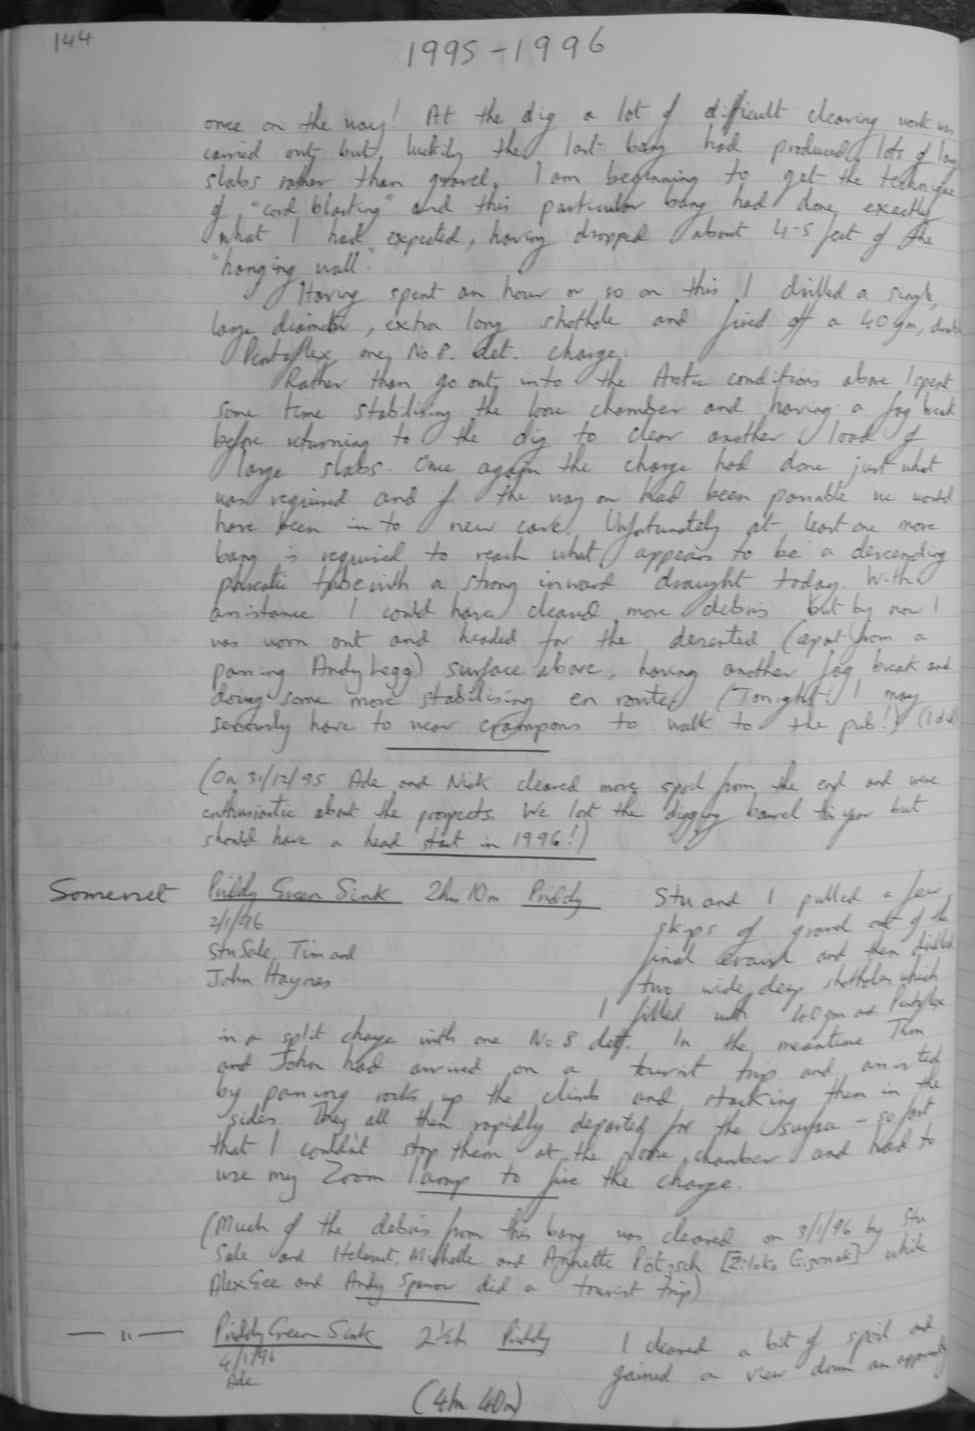 144
1995-1996
once on the way! At the dig a lot of difficult clearing work was
carried out but, luckily the last bang had produced lots of large
slabs rather than gravel. I am beginning to get the technique
of "cord blasting" and this particular bang had done exactly
what I had expected, having dropped about 4-5 feet of the
"hanging wall".
Having spent an hour or so on this I drilled a single,
large diameter, extra long shothole and fired off a 40gm, double
Pentaflex, one No 8. det. charge.
Rather than go out into the Arctic conditions above I spent
some time stabilising the loose chamber and having a fag break
before returning to the dig to clear another load of
large slabs. Once again the charge had done just what
was required and if the way on had been passable we would
have been in to new cave. Unfortunately at least one more
bang is required to reach what appears to be a descending
phreatic tube with a strong inward draught today. With
assistance I could have cleared more debris but by now I
was worn out and headed for the deserted (apart from a
passing Andy Legg) surface above, having another fag break and
doing some more stabilising en route. (Tonight I may
seriously have to wear crampons to walk to the pub!) (I did
(On 31/12/95 Ade and Nick cleared more spoil from the end and were
enthusiastic about the prospects. We lost the digging barrel this year but
should have a head start in 1996!)
Somerset Priddy Green Sink 2hrs 10m Priddy Stu and I pulled a few
2/1/96 skips of gravel out of the
Stu Sale, Tim and final crawl and then drilled
John Haynes two wide, deep shotholes which
I filled with 40gm and Pentaflex
in a split charge with one No 8 det. In the meantime Tim
and John had arrived on a tourist trip and assisted
by passing rocks up the climb and stacking them in the
sides. They all then rapidly departed for the surface - so fast
that I couldn't stop them at the loose chamber and had to
use my Zoom lamp to fire the charge.
(Much of the debris from this bang was cleared on 3/1/96 by Stu
Sale and Helmut, Michelle and Annette Potzsch while
Alex Gee and Andy did a tourist trip)
— " — Priddy Green Sink 2½h Priddy I cleared a bit of spoil and
4/1/96 gained a view down an apparently
Ade
(4h 40m)